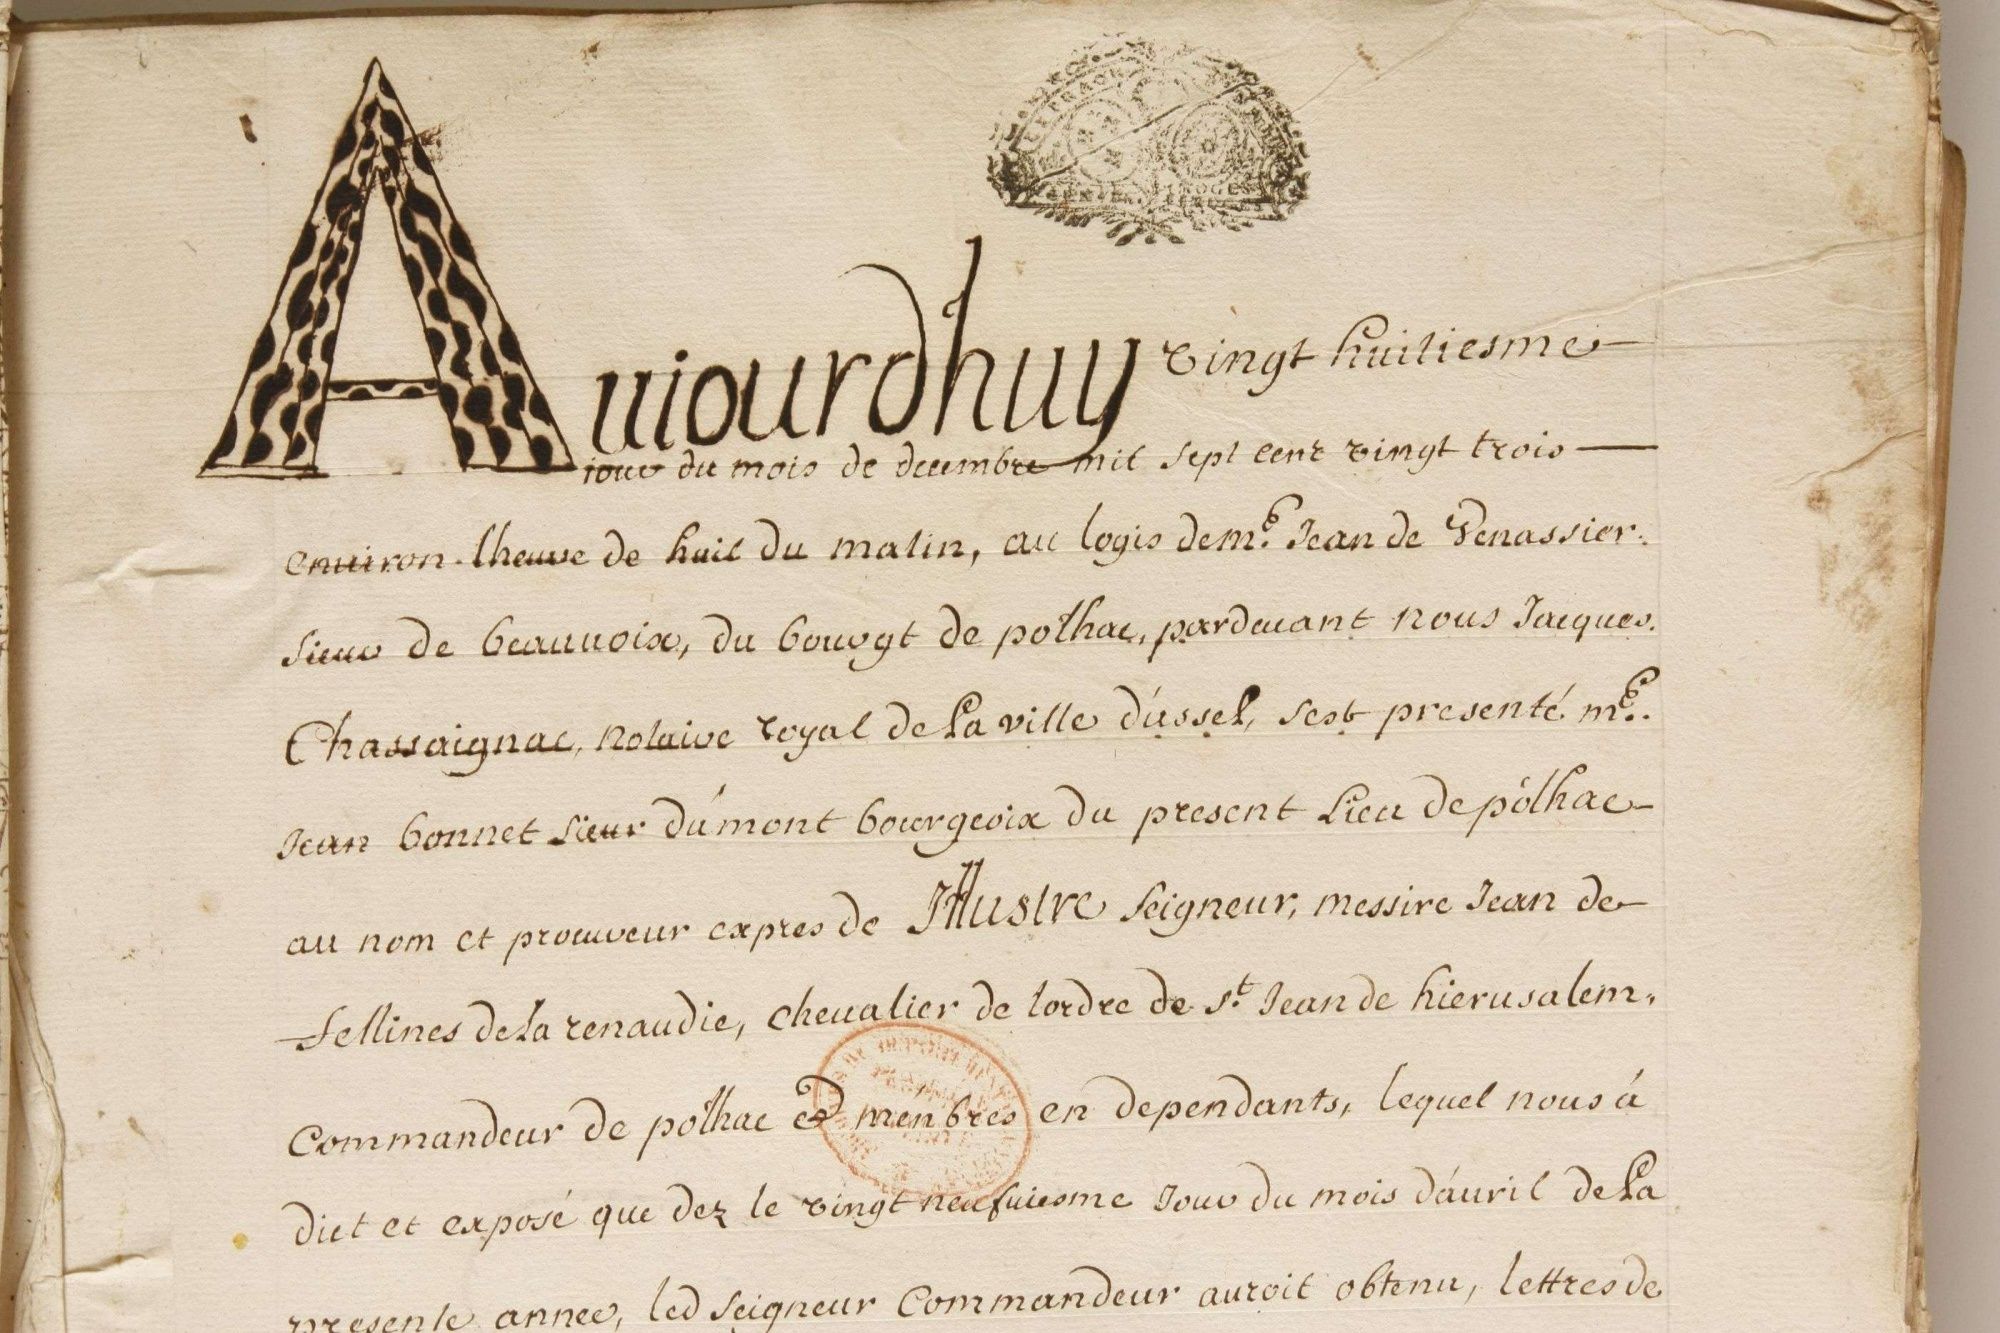 Auiourdhuy vingt huitiesme
iour du mois de decembre mil sept cent vingt trois
enuiron lheure de huit du matin, au logis de mᵉ. Jean de Venassier.
sieur de beauuoix, du bourgt de polhac, pardeuant nous Jacques.
Chassaignac, notaire royal de La ville d'ussel, sest presenté mᵉ.
Jean bonnet sieur dúmont bourgeoix du present Lieu de pólhac
au nom et procureur expres de Jllustre seigneur, messire Jean de
fellines de La renaudie, cheualier de lordre de sᵗ. Jean de hierusalem,
Commandeur de polhac & menbres en dependants, lequel nous á
dict et exposé que dez le vingt neufuiesme Jour du mois d'áuril de La
presente annee, led seigneur Commandeur auroit obtenu, lettres de
LIMOGES